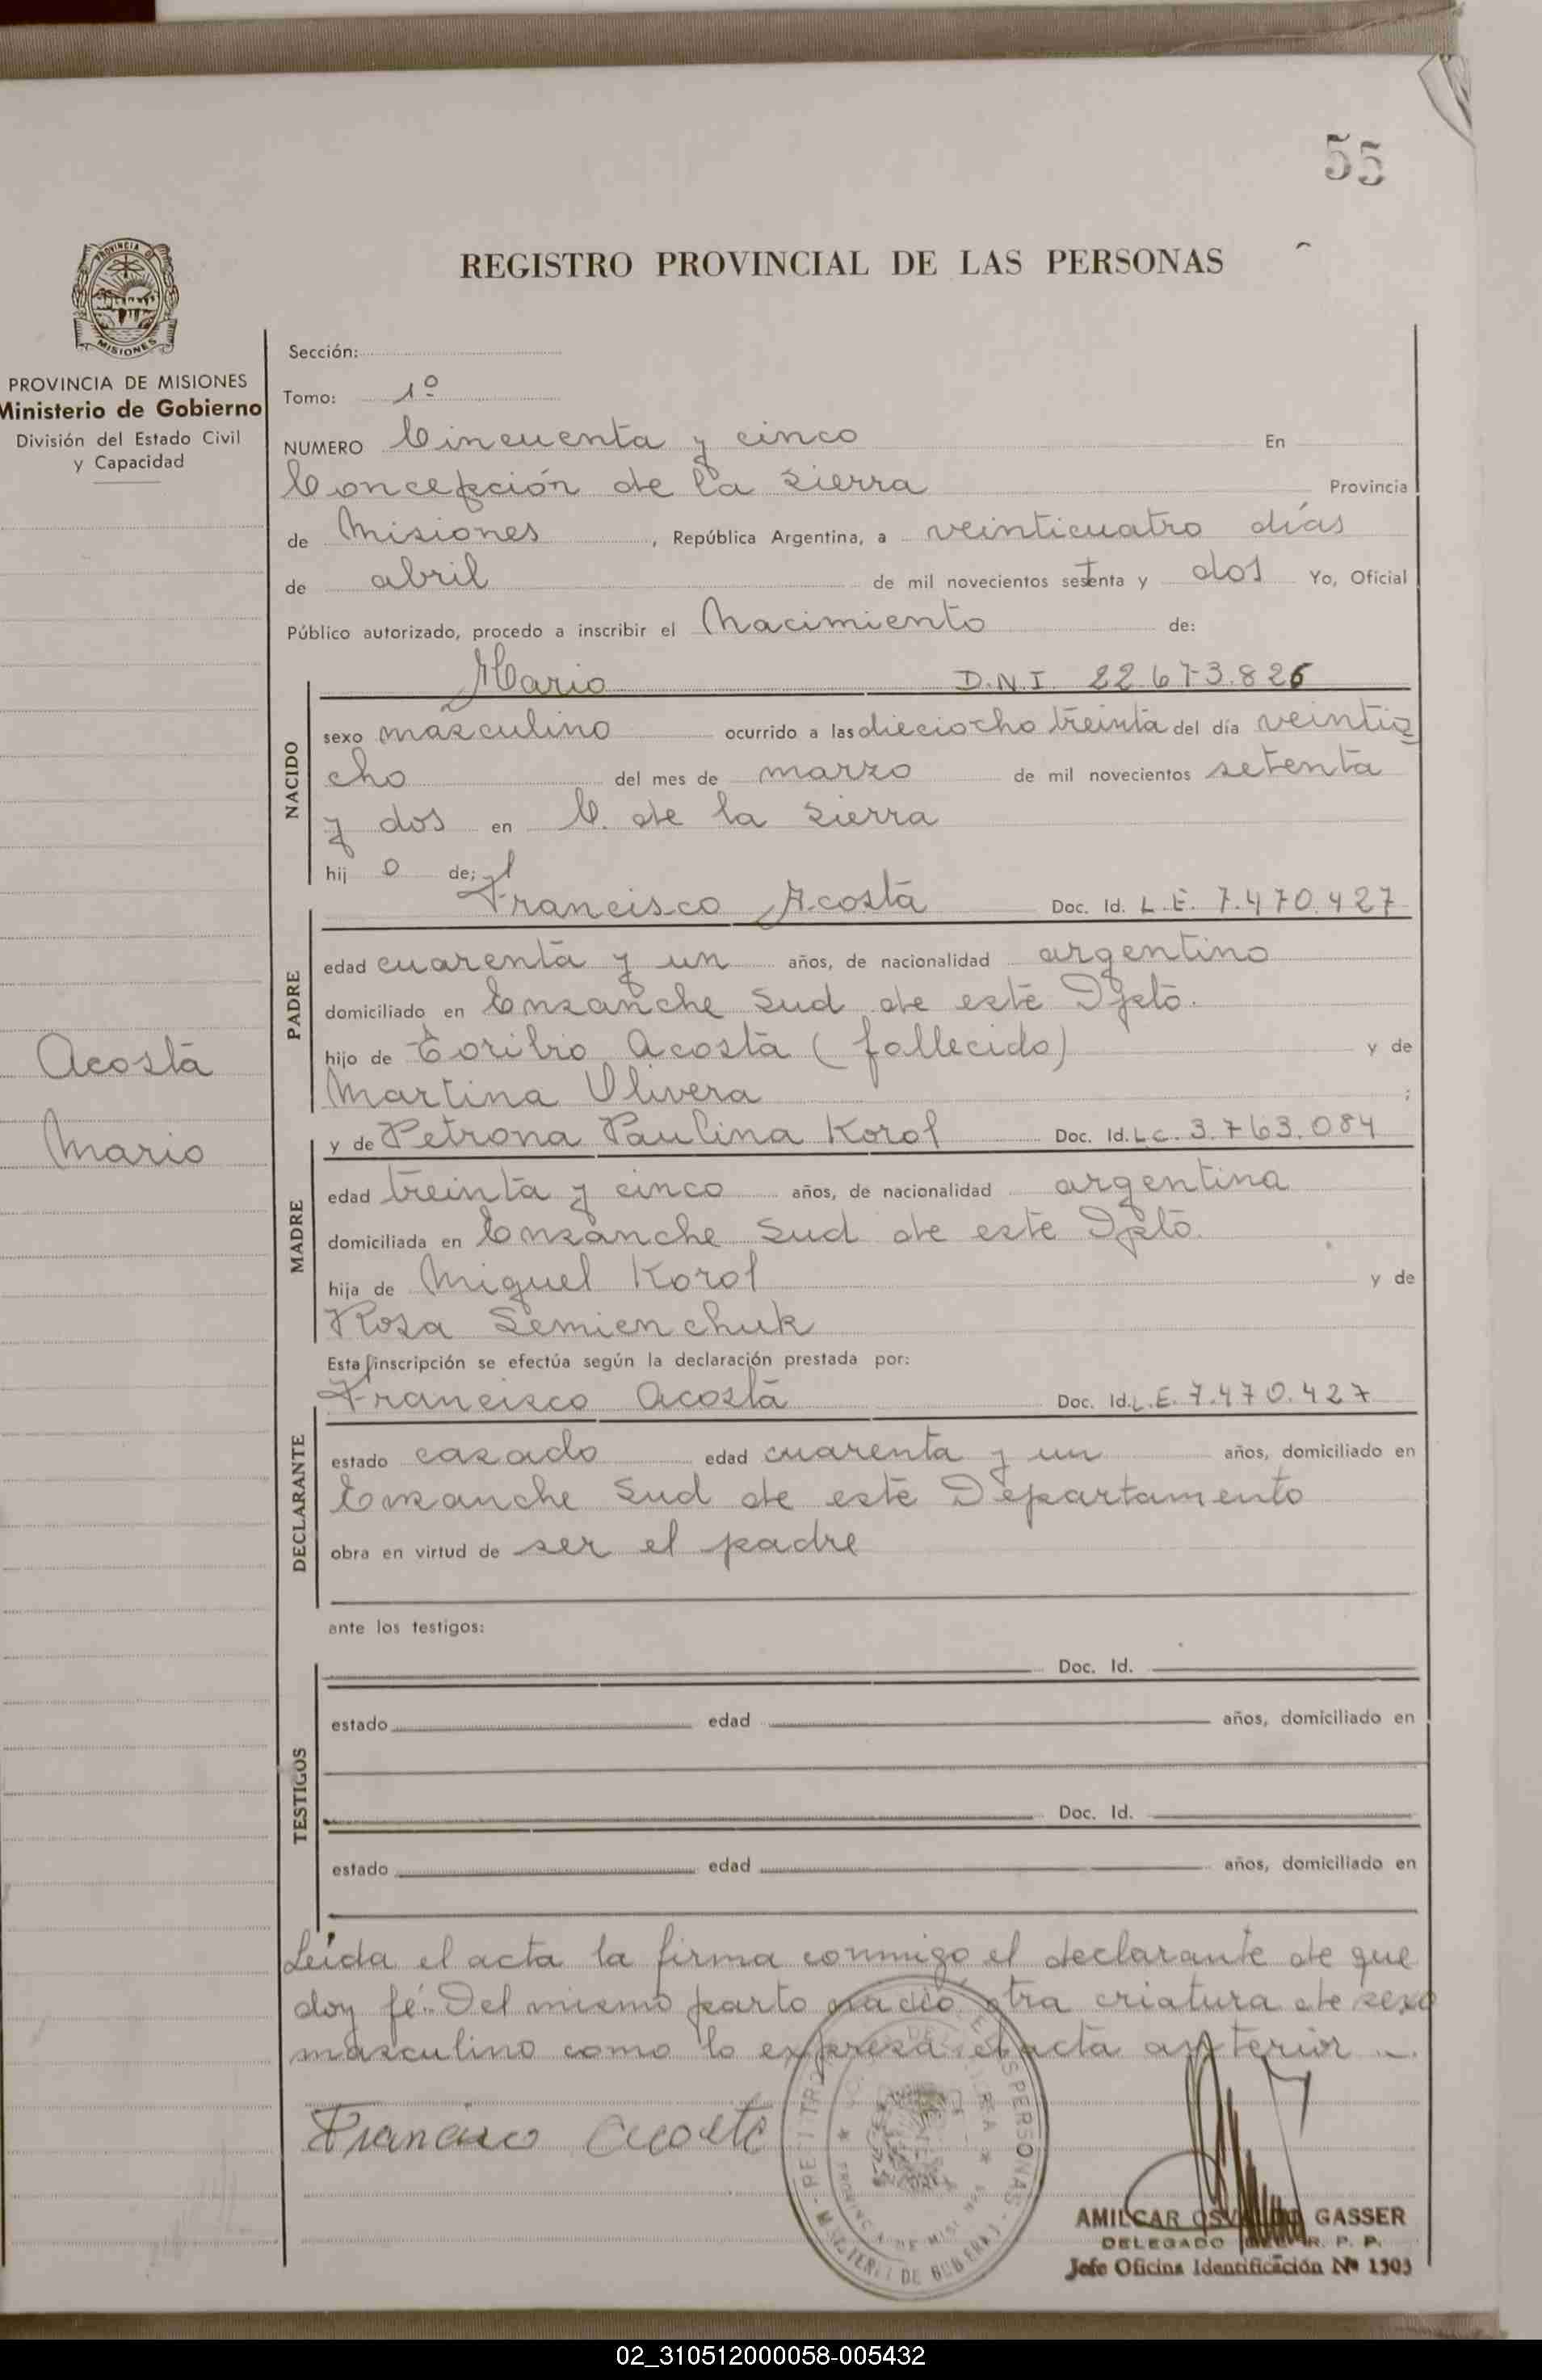 55
REGISTRO PROVINCIAL DE LAS PERSONAS
PROVINCIA DE MISIONES
Ministerio de Gobierno
División del Estado Civil
y Capacidad
Acosta
Mario
Sección:
Tomo: 1º
NUMERO Cincuenta y cinco En
Concepción de la Sierra Provincia
de Misiones, República Argentina, a veinticuatro días
de abril de mil novecientos setenta y dos Yo, Oficial
Público autorizado, procedo a inscribir el Nacimiento de:
Mario D.N.I 22.673.826
NACIDO
sexo masculino ocurrido a las dieciocho treinta del día veintio
cho del mes de marzo de mil novecientos setenta
y dos en C. de la Sierra
hij o de;
Francisco Acosta Doc. Id. L.E. 7.470.427
PADRE
edad cuarenta y un años, de nacionalidad argentino
domiciliado en Ensanche Sud de este Dpto.
hijo de Toribio Acosta (fallecido) y de
Martina Olivera ;
y de Petrona Paulina Korol Doc. Id. L.C. 3.763.084
MADRE
edad treinta y cinco años, de nacionalidad argentina
domiciliada en Ensanche Sud de este Dpto.
hija de Miguel Korol y de
Rosa Semienchuk
Esta inscripción se efectúa según la declaración prestada por:
Francisco Acosta Doc. Id. L.E. 7.470.427
DECLARANTE
estado casado edad cuarenta y un años, domiciliado en
Ensanche Sud de este Departamento
obra en virtud de ser el padre
ante los testigos:
Doc. Id.
TESTIGOS
estado edad años, domiciliado en
Doc. Id.
estado edad años, domiciliado en
Leída el acta la firma conmigo el declarante de que
doy fé. Del mismo parto nació otra criatura de sexo
masculino como lo expresa el acta anterior
Francisco Acosta
AMILCAR OSVALDO GASSER
DELEGADO DEL R. P. P.
Jefe Oficina Identificación Nº 1503
02_310512000058-005432